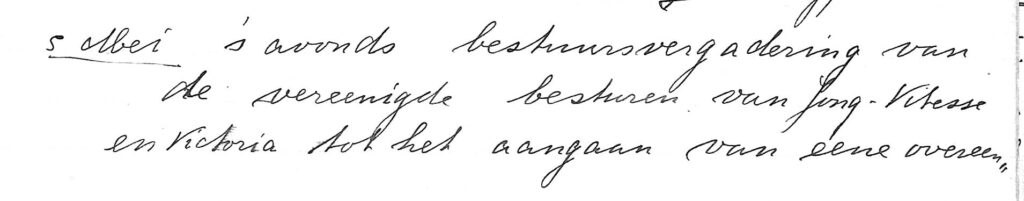 5 Mei 's avonds bestuursvergadering van
de vereenigde besturen van Jong-Vitesse
en Victoria tot het aangaan van eene overeen„